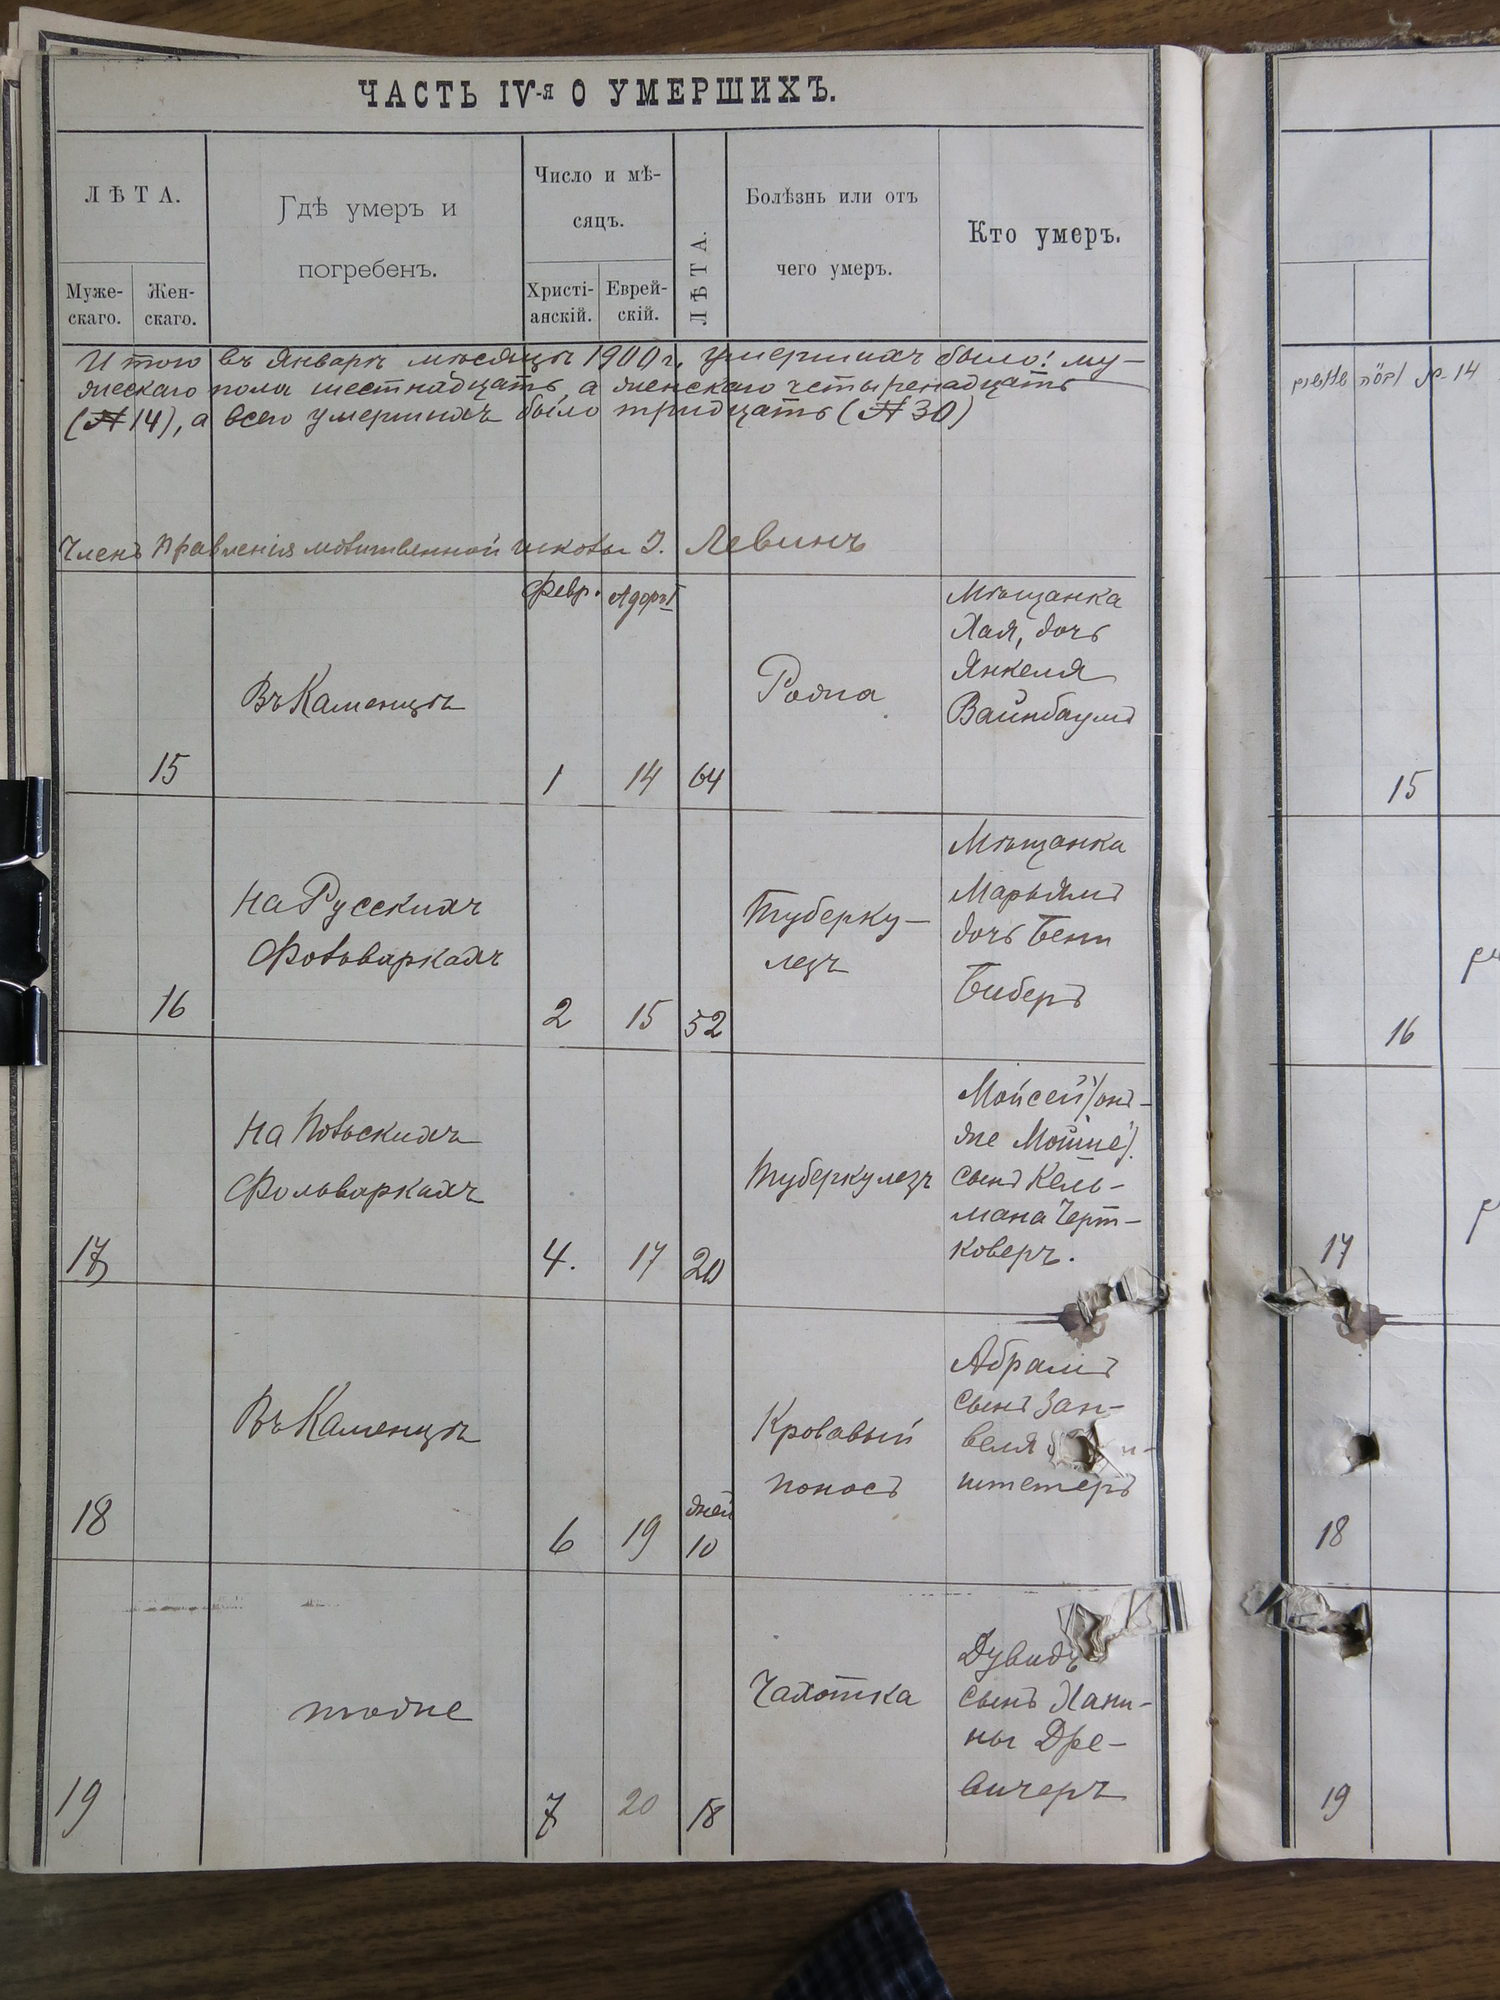 ЧАСТЬ IV-я О УМЕРШИХЪ.
ЛѢТА.
Мужескаго.
Женскаго.
Гдѣ умеръ и
погребенъ.
Число и мѣ-
сяцъ.
Христі-
анскій.
Еврей-
скій.
ЛѢТА.
Болѣзнь или отъ
чего умеръ.
Кто умеръ.
Итого въ Январѣ мѣсяцѣ 1900 г. умершихъ было: му-
жескаго пола шестнадцать, а женскаго четыренадцать
(№ 14), а всего умершихъ было тридцать (№ 30)
Членъ Правленія молитвенной школы І. Левинъ
Февр.
15
Въ Каменцѣ
1
14
64
Мѣщанка
Хая, дочь
Янкеля
Вайнбаумъ
16
на Русскихъ
Фольваркахъ
2
15
52
Туберку-
лезъ
Мѣщанка
Марьямъ
дочь Бени
Биберъ
17
на Польскихъ
Фольваркахъ
4.
17
20
Туберкулезъ
Мойсей (онъ-
же Мошне).
сынъ Кель-
мана Черт-
коверъ.
18
Въ Каменцѣ
6
19
дней
10
Кровавый
поносъ
Абрамъ
сынъ Зан-
веля
штетеръ
19
тоже
7
20
18
Чахотка
Дувидъ
сынъ Хани-
ны Дре-
вичеръ
14
15
16
17
18
19